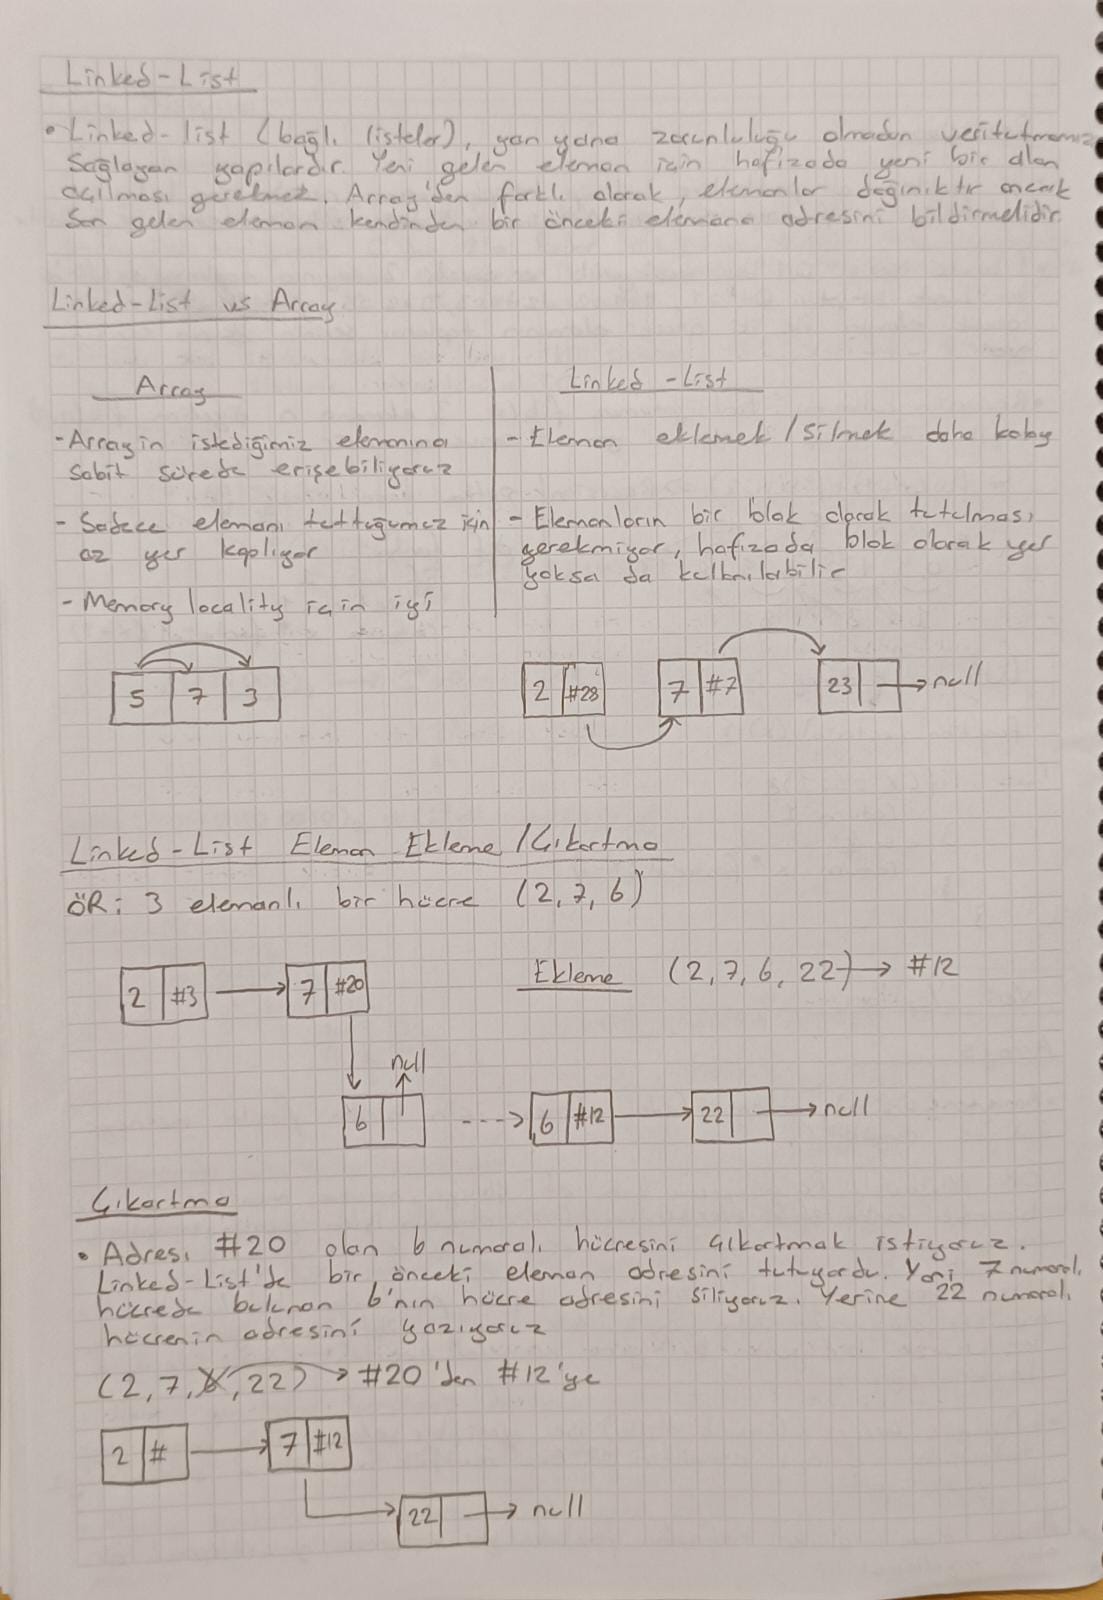 Linked-List
• Linked-list (bağlı listeler), yan yana zorunluluğu olmadan veri tutmamızı
sağlayan yapılardır. Yeni gelen eleman için hafızada yeni bir alan
açılması gerekmez. Array'den farklı olarak, elemanlar dağınıktır ancak
son gelen eleman kendinden bir önceki elemana adresini bildirmelidir.
Linked-List vs Array
Array
Linked-List
- Arrayin istediğimiz elemanına
sabit sürede erişebiliyoruz
- Sadece elemanı tuttuğumuz için
az yer kaplıyor
- Memory locality için iyi
- Eleman eklemek/silmek daha kolay
- Elemanların bir blok olarak tutulması
gerekmiyor, hafızada blok olarak yer
yoksa da kullanılabilir
5 7 3
2 #28 7 #7 23 null
Linked-List Eleman Ekleme/Çıkartma
ÖR: 3 elemanlı bir hücre (2, 7, 6)
2 #3 7 #20
Ekleme (2, 7, 6, 22) → #12
null
6 6 #12 22 null
Çıkartma
• Adresi #20 olan 6 numaralı hücresini çıkartmak istiyoruz.
Linked-List'de bir önceki eleman adresini tutuyordu. Yani 7 numaralı
hücrede bulunan 6'nın hücre adresini siliyoruz. Yerine 22 numaralı
hücrenin adresini yazıyoruz
(2, 7, 6, 22) → #20'den #12'ye
2 # 7 #12
22 null